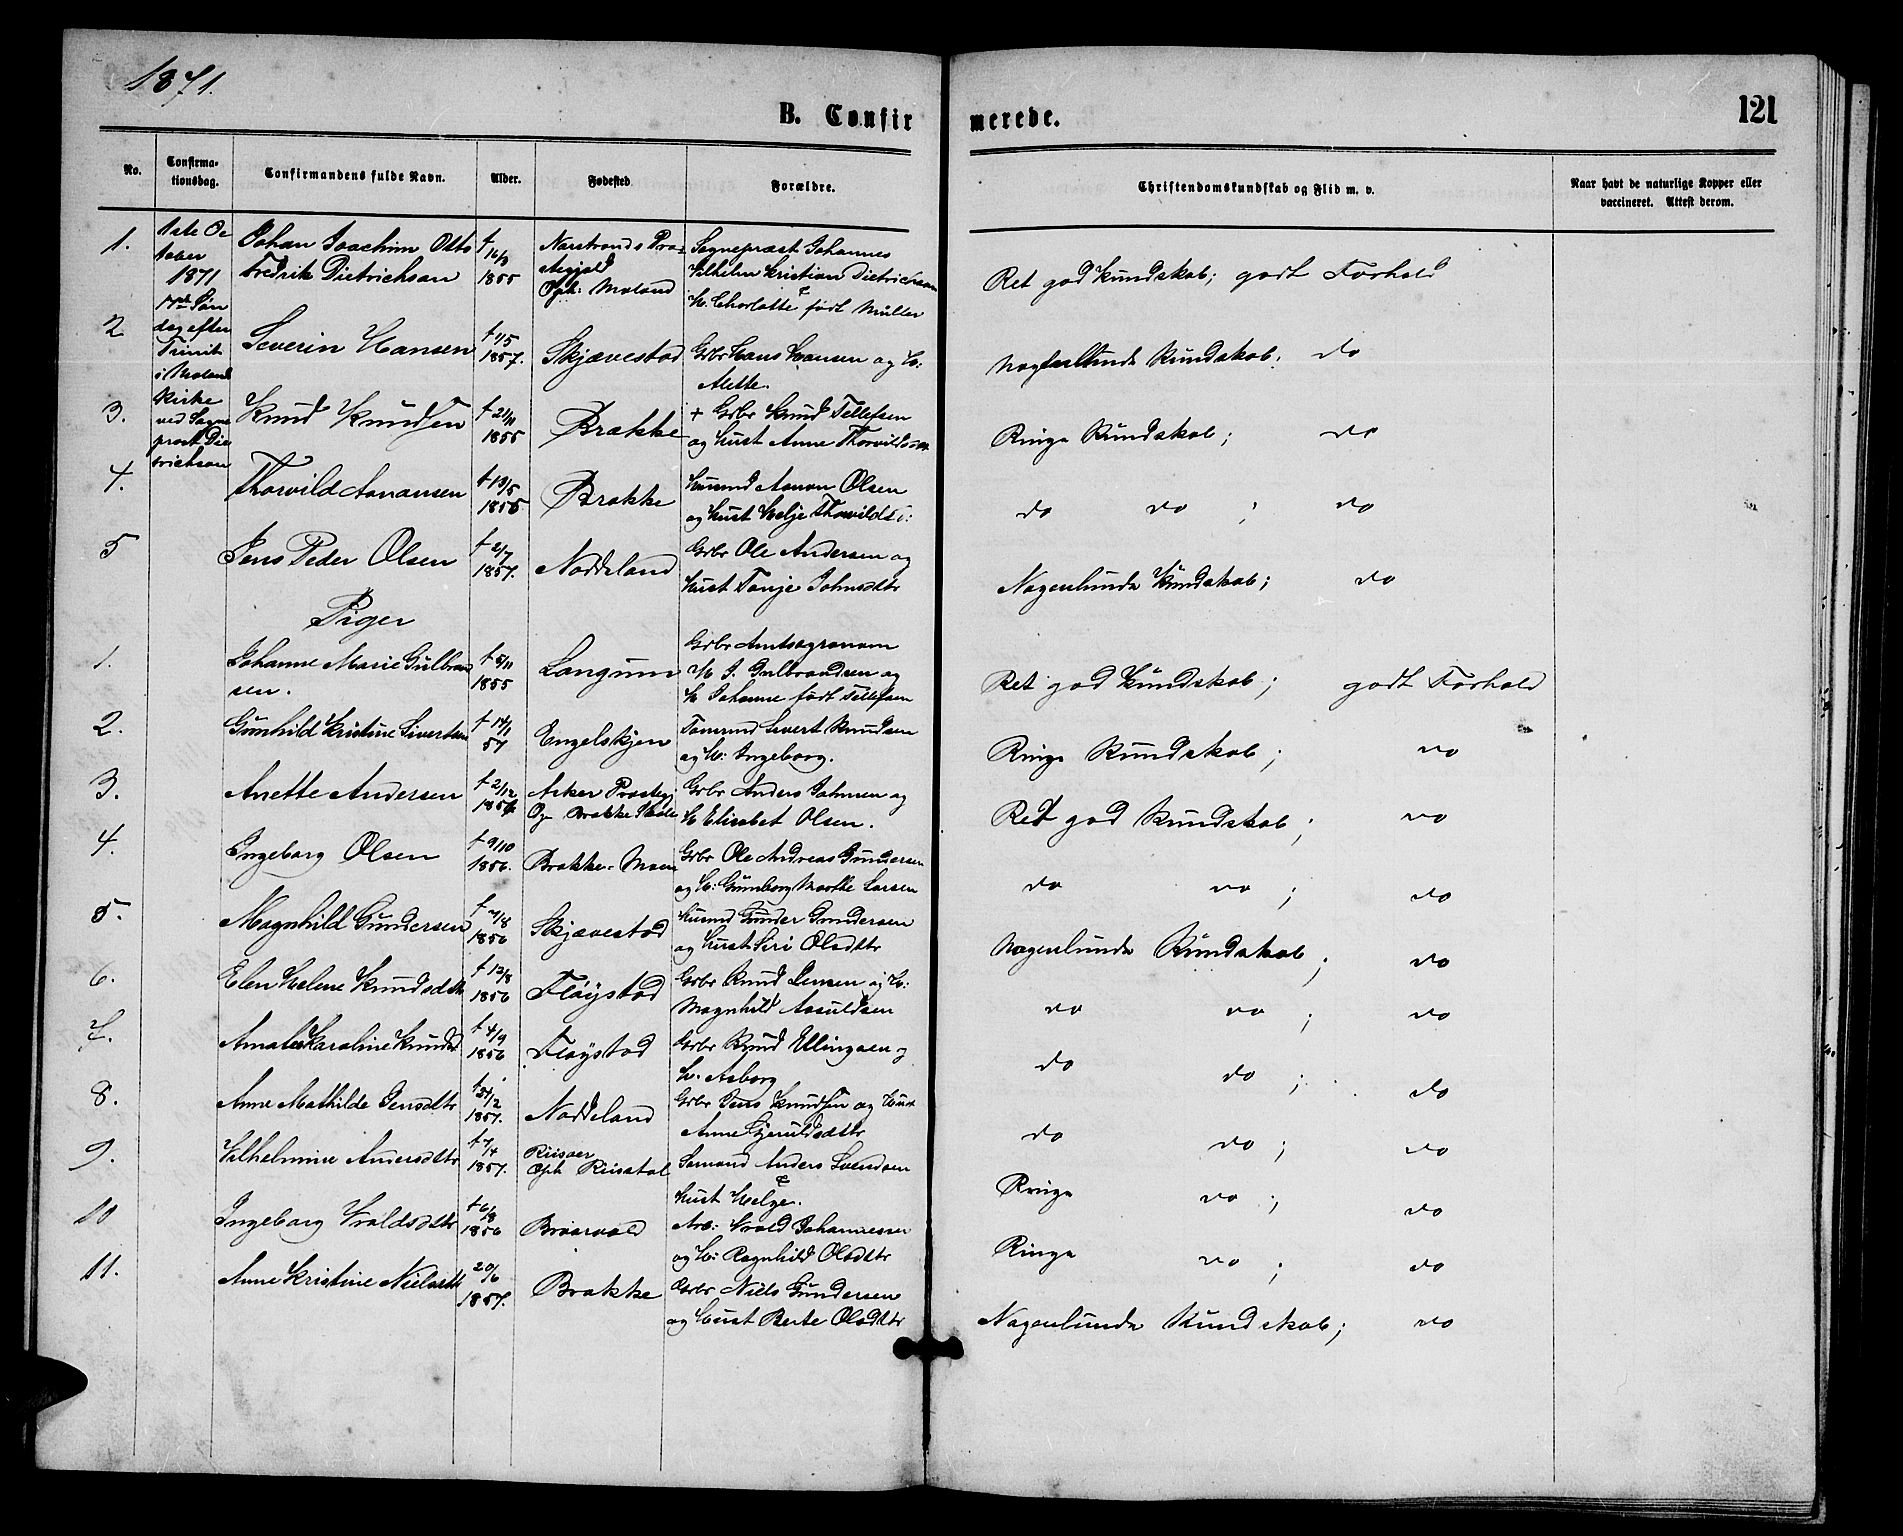 1871.
B. Confirmerede.
121
No.
Confirmationsdag.
Confirmandens fulde Navn.
Alder.
Fødested
Forældre.
Christendomskundskab og Flid m. v.
Naar havt de naturlige Kopper eller
vaccineret. Attest derom.
1ste Oc
tober
1871
Søn
dag efter
Trinit
i Moland
Kirke
ved Sogne
præst Die
trichson
1. Johan Joachim Otto
Fredrik Dietrichson
1855
Præ
stegjeld
Oph: Moland
Sognepræst Johannes
Vilhelm Kristian Dietrichson
H. Charlotte født Müller
Ret god Kundskab; godt Forhold
2 Severin Hansen
1857.
Skjævestad
Grbr Hans Hansen og H:
Alette.
Nogenlunde Kundskab; do
3. Knud Knudsen
21/11
1855
Brække
+ Grbr Knud Tellefsen
og Hust Anne Thorvildsdtr
Ringe Kundskab; do
4. Thorvild Aanonsen
13/5
Brække
Husmd Aanon Olsen
og Hust Helje Thorvilds
do do ; do
5 Jens Peder Olsen
2/7
1857.
Noddeland
Grbr Ole Andersen og
Hust Tonje Johnsdtr
Nogenlunde Kundskab; do
Piger
1. Johanne Marie Gulbrand
sen.
5/11
1855
Langum
Grbr Amtsagronom
J. Gulbrandsen og
H Johanne født Tellefsen
Ret god Kundskab; godt Forhold
2. Gunhild Kristine Sivertsen
57
Engelskjøn
Sivert Knudsen
og H: Ingeborg.
Ringe Kundskab; do
3. Anette Andersen
2/12
Asker Præstegj
Op Brække Skole
Grbr Anders Johnsen og
H Elisabet Olsen.
Ret god Kundskab; do
4. Ingeborg Olsen
9/10
1856.
Brække-Moen
Grbr Ole Andreas Gundersen
og H: Gunborg Marthe Larsen
do do ; do
5. Magnhild Gundersen
1856
Skjævestad
Husmd Gunder Gundersen
og Hust Siri Olsdttr
Nogenlunde Kundskab; do
6. Elen Helene Knudsdtr
12/8
1856
Fløystad
Grbr Knud Jensen og H:
Magnhild Aasuldsen
do do ; do
7. Karoline Knudsd
4/9
1856
Fløystad
Grbr Knud Ellingsen og
H. Asborg
do do ; do
8. Anne Mathilde Jensdtr
1857.
Noddeland
Grbr Jens Knudsen og Hust
Anne Gjeruldsdttr
do do ; do
9. Vilhelmine Andersdtr
7/4
1857.
Riisøer
Oph Riisdal
Sømand Anders Svendsen
Hust Helge.
Ringe do ; do
10 Ingeborg Vraldsdtr
6/8
1856
Braarvold
Arb: Vrald Johannessen
og H: Ragnhild Olsdttr
Ringe do ; do
11. Anne Kristine Nielsdtr
20/6
1857.
Brække
Grbr Niels Gundersen
og Hust Berte Olsdttr
Nogenlunde Kundskab; do